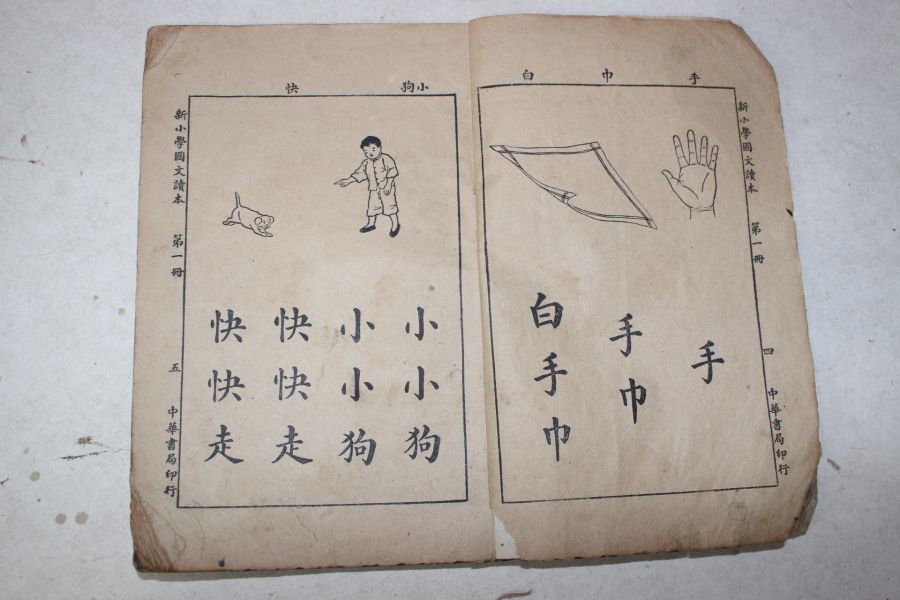 手 巾 白
新小學國文讀本 第一冊 四 中華書局印行
手
手巾
白手巾
小狗 快
小小狗
小小狗
快快走
快快走
新小學國文讀本 第一冊 五 中華書局印行